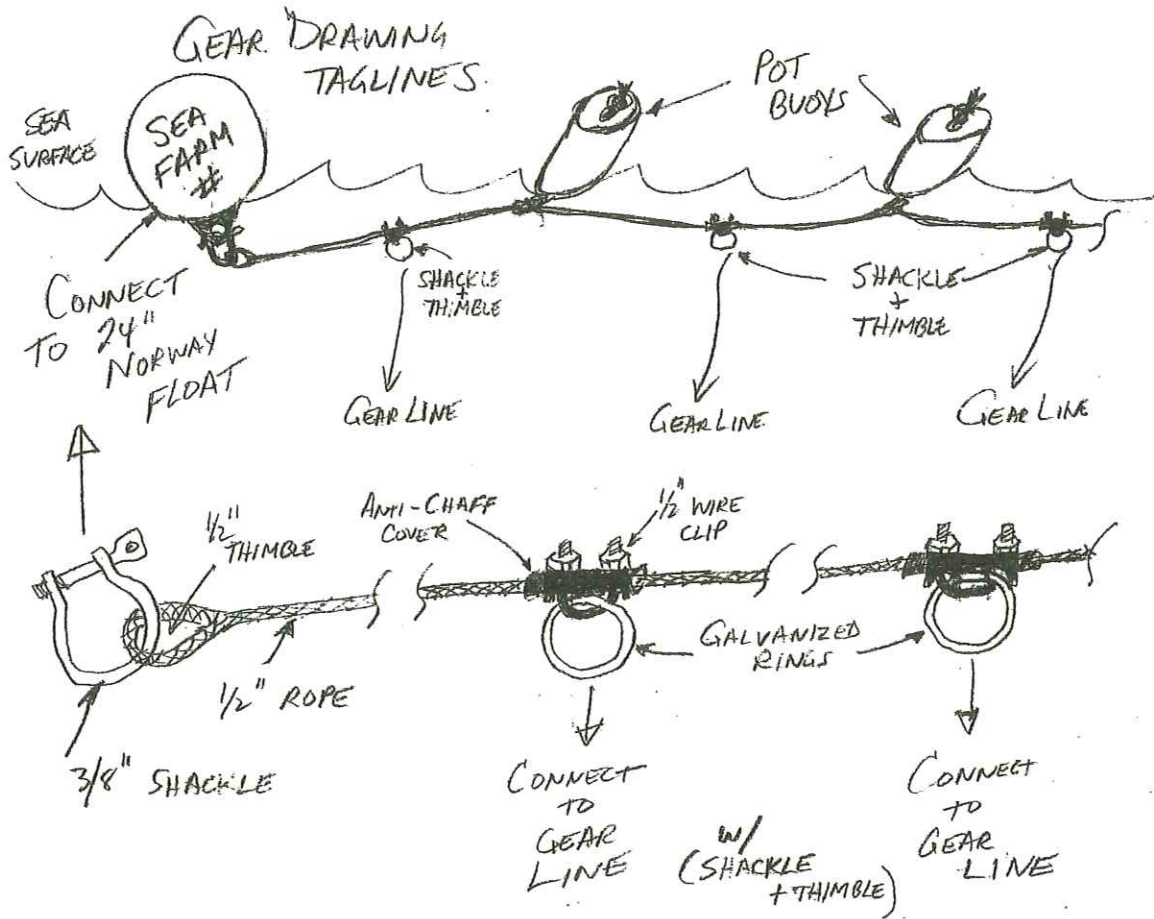 GEAR DRAWING
TAGLINES.
SEA
SURFACE
SEA
FARM
#
POT
BUOYS
CONNECT
TO 24"
NORWAY
FLOAT
SHACKLE
+
THIMBLE
SHACKLE
+
THIMBLE
GEAR LINE
GEAR LINE
GEAR LINE
1/2"
THIMBLE
ANTI-CHAFF
COVER
1/2" WIRE
CLIP
1/2" ROPE
3/8" SHACKLE
GALVANIZED
RINGS
CONNECT
TO
GEAR
LINE
W/
(SHACKLE
+ THIMBLE)
CONNECT
TO
GEAR
LINE